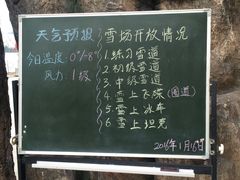 天气预报
今日温度:0°/-8°
风力:1级
雪场开放情况
1.练习雪道
2.初级雪道
3.中级雪道
4.雪上飞碟(圈道)
5.雪上冰车
6.雪上坦克
2016年1月16日